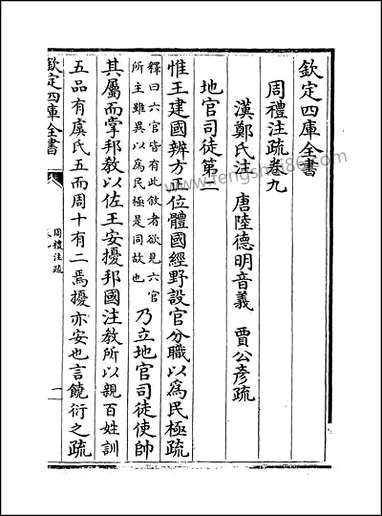 欽定四庫全書
周禮注疏卷九
漢鄭氏注　唐陸德明音義　賈公彥疏
地官司徒第二
惟王建國辨方正位體國經野設官分職以為民極疏
釋曰六官皆有此敘者欲見六官
所主雖異以為民極是同故也
乃立地官司徒使帥
其屬而掌邦教以佐王安擾邦國注教所以親百姓訓
五品有虞氏五而周十有二焉擾亦安也言饒衍之疏
欽定四庫全書
周禮注疏
一